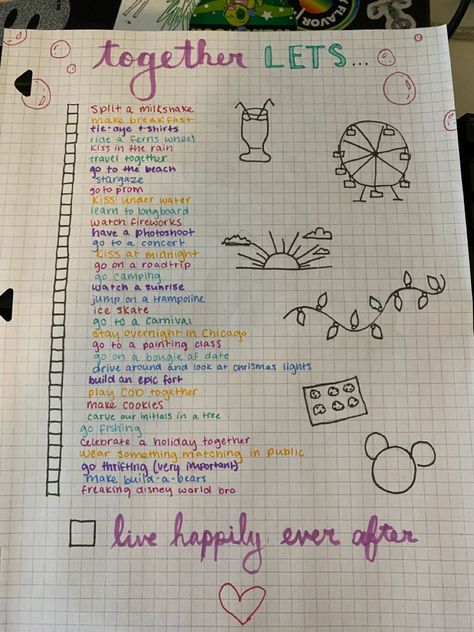 together LETS...
FLAVOR
split a milkshake
make breakfast
tie-dye t-shirts
ride a ferris wheel
kiss in the rain
travel together
go to the beach
stargaze
go to prom
kiss under water
learn to longboard
watch fireworks
have a photoshoot
go to a concert
kiss at midnight
go on a roadtrip
go camping
watch a sunrise
jump on a trampoline
ice skate
go to a carnival
stay overnight in Chicago
go to a painting class
go on a bougie af date
drive around and look at chrismas lights
build an epic fort
play COD together
make cookies
carve our initials in a tree
go fishing
celebrate a holiday together
wear something matching in public
go thrifting (very important)
make build-a-bears
freaking disney world bro
live happily ever after